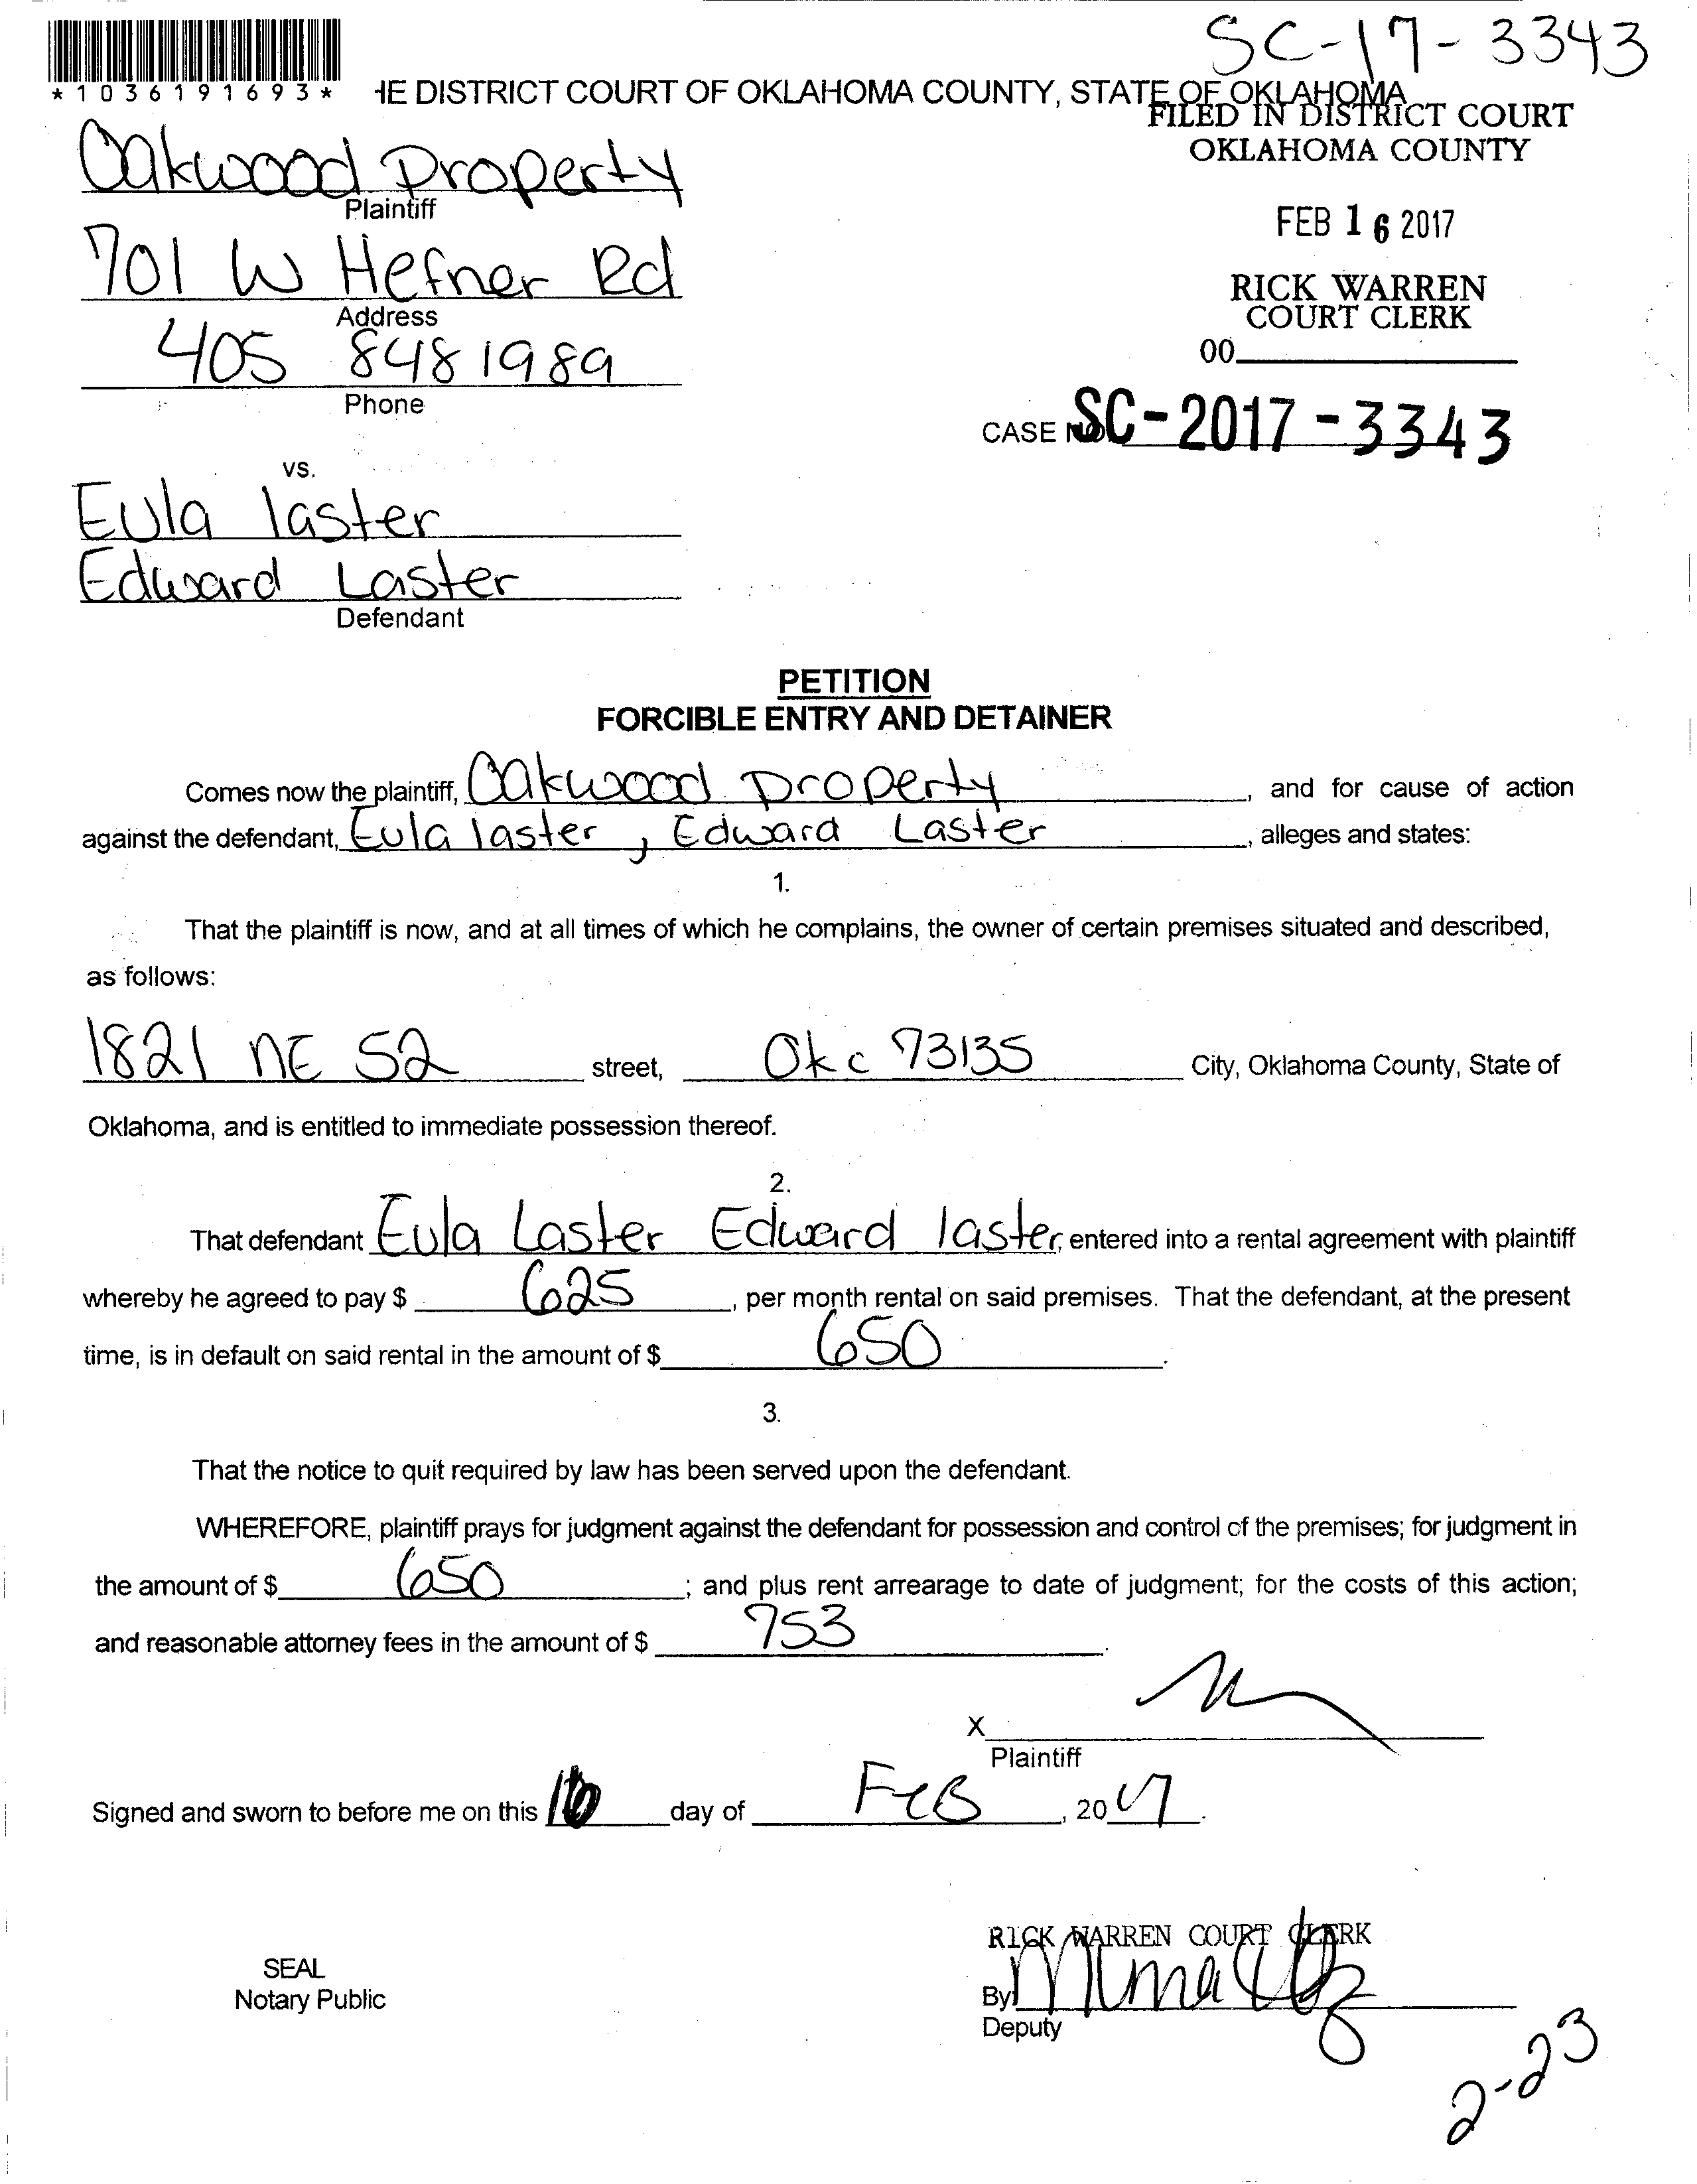 SC-17-3343
*1036191693*
HE DISTRICT COURT OF OKLAHOMA COUNTY, STATE OF OKLAHOMA
FILED IN DISTRICT COURT
OKLAHOMA COUNTY
Oakwood Property
Plaintiff
FEB 16 2017
701 W Hefner Rd
Address
RICK WARREN
COURT CLERK
405 848 1989
Phone
00
CASE NO. SC-2017-3343
vs.
Eula laster
Edward Laster
Defendant
PETITION
FORCIBLE ENTRY AND DETAINER
Comes now the plaintiff, Oakwood Property, and for cause of action
against the defendant, Eula laster, Edward Laster, alleges and states:
1.
That the plaintiff is now, and at all times of which he complains, the owner of certain premises situated and described,
as follows:
1821 NE 52 street, Okc 73135 City, Oklahoma County, State of
Oklahoma, and is entitled to immediate possession thereof.
2.
That defendant Eula Laster Edward laster, entered into a rental agreement with plaintiff
whereby he agreed to pay $ 625, per month rental on said premises. That the defendant, at the present
time, is in default on said rental in the amount of $ 650.
3.
That the notice to quit required by law has been served upon the defendant.
WHEREFORE, plaintiff prays for judgment against the defendant for possession and control of the premises; for judgment in
the amount of $ 650; and plus rent arrearage to date of judgment; for the costs of this action;
and reasonable attorney fees in the amount of $ 753.
X
Plaintiff
Signed and sworn to before me on this 16 day of Feb, 2017.
RICK WARREN COURT CLERK
SEAL
Notary Public
By
Deputy
2-23